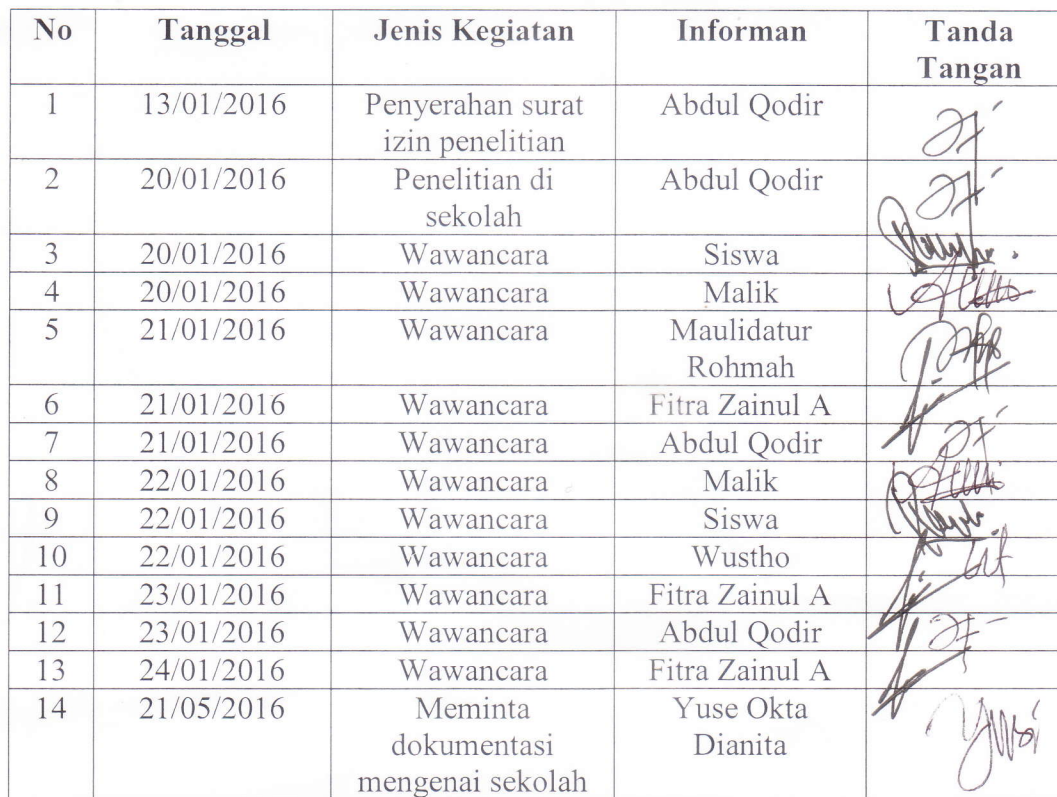 No Tanggal Jenis Kegiatan Informan Tanda
Tangan
1 13/01/2016 Penyerahan surat Abdul Qodir
izin penelitian
2 20/01/2016 Penelitian di Abdul Qodir
sekolah
3 20/01/2016 Wawancara Siswa
4 20/01/2016 Wawancara Malik
5 21/01/2016 Wawancara Maulidatur
Rohmah
6 21/01/2016 Wawancara Fitra Zainul A
7 21/01/2016 Wawancara Abdul Qodir
8 22/01/2016 Wawancara Malik
9 22/01/2016 Wawancara Siswa
10 22/01/2016 Wawancara Wustho
11 23/01/2016 Wawancara Fitra Zainul A
12 23/01/2016 Wawancara Abdul Qodir
13 24/01/2016 Wawancara Fitra Zainul A
14 21/05/2016 Meminta Yuse Okta
dokumentasi Dianita
mengenai sekolah